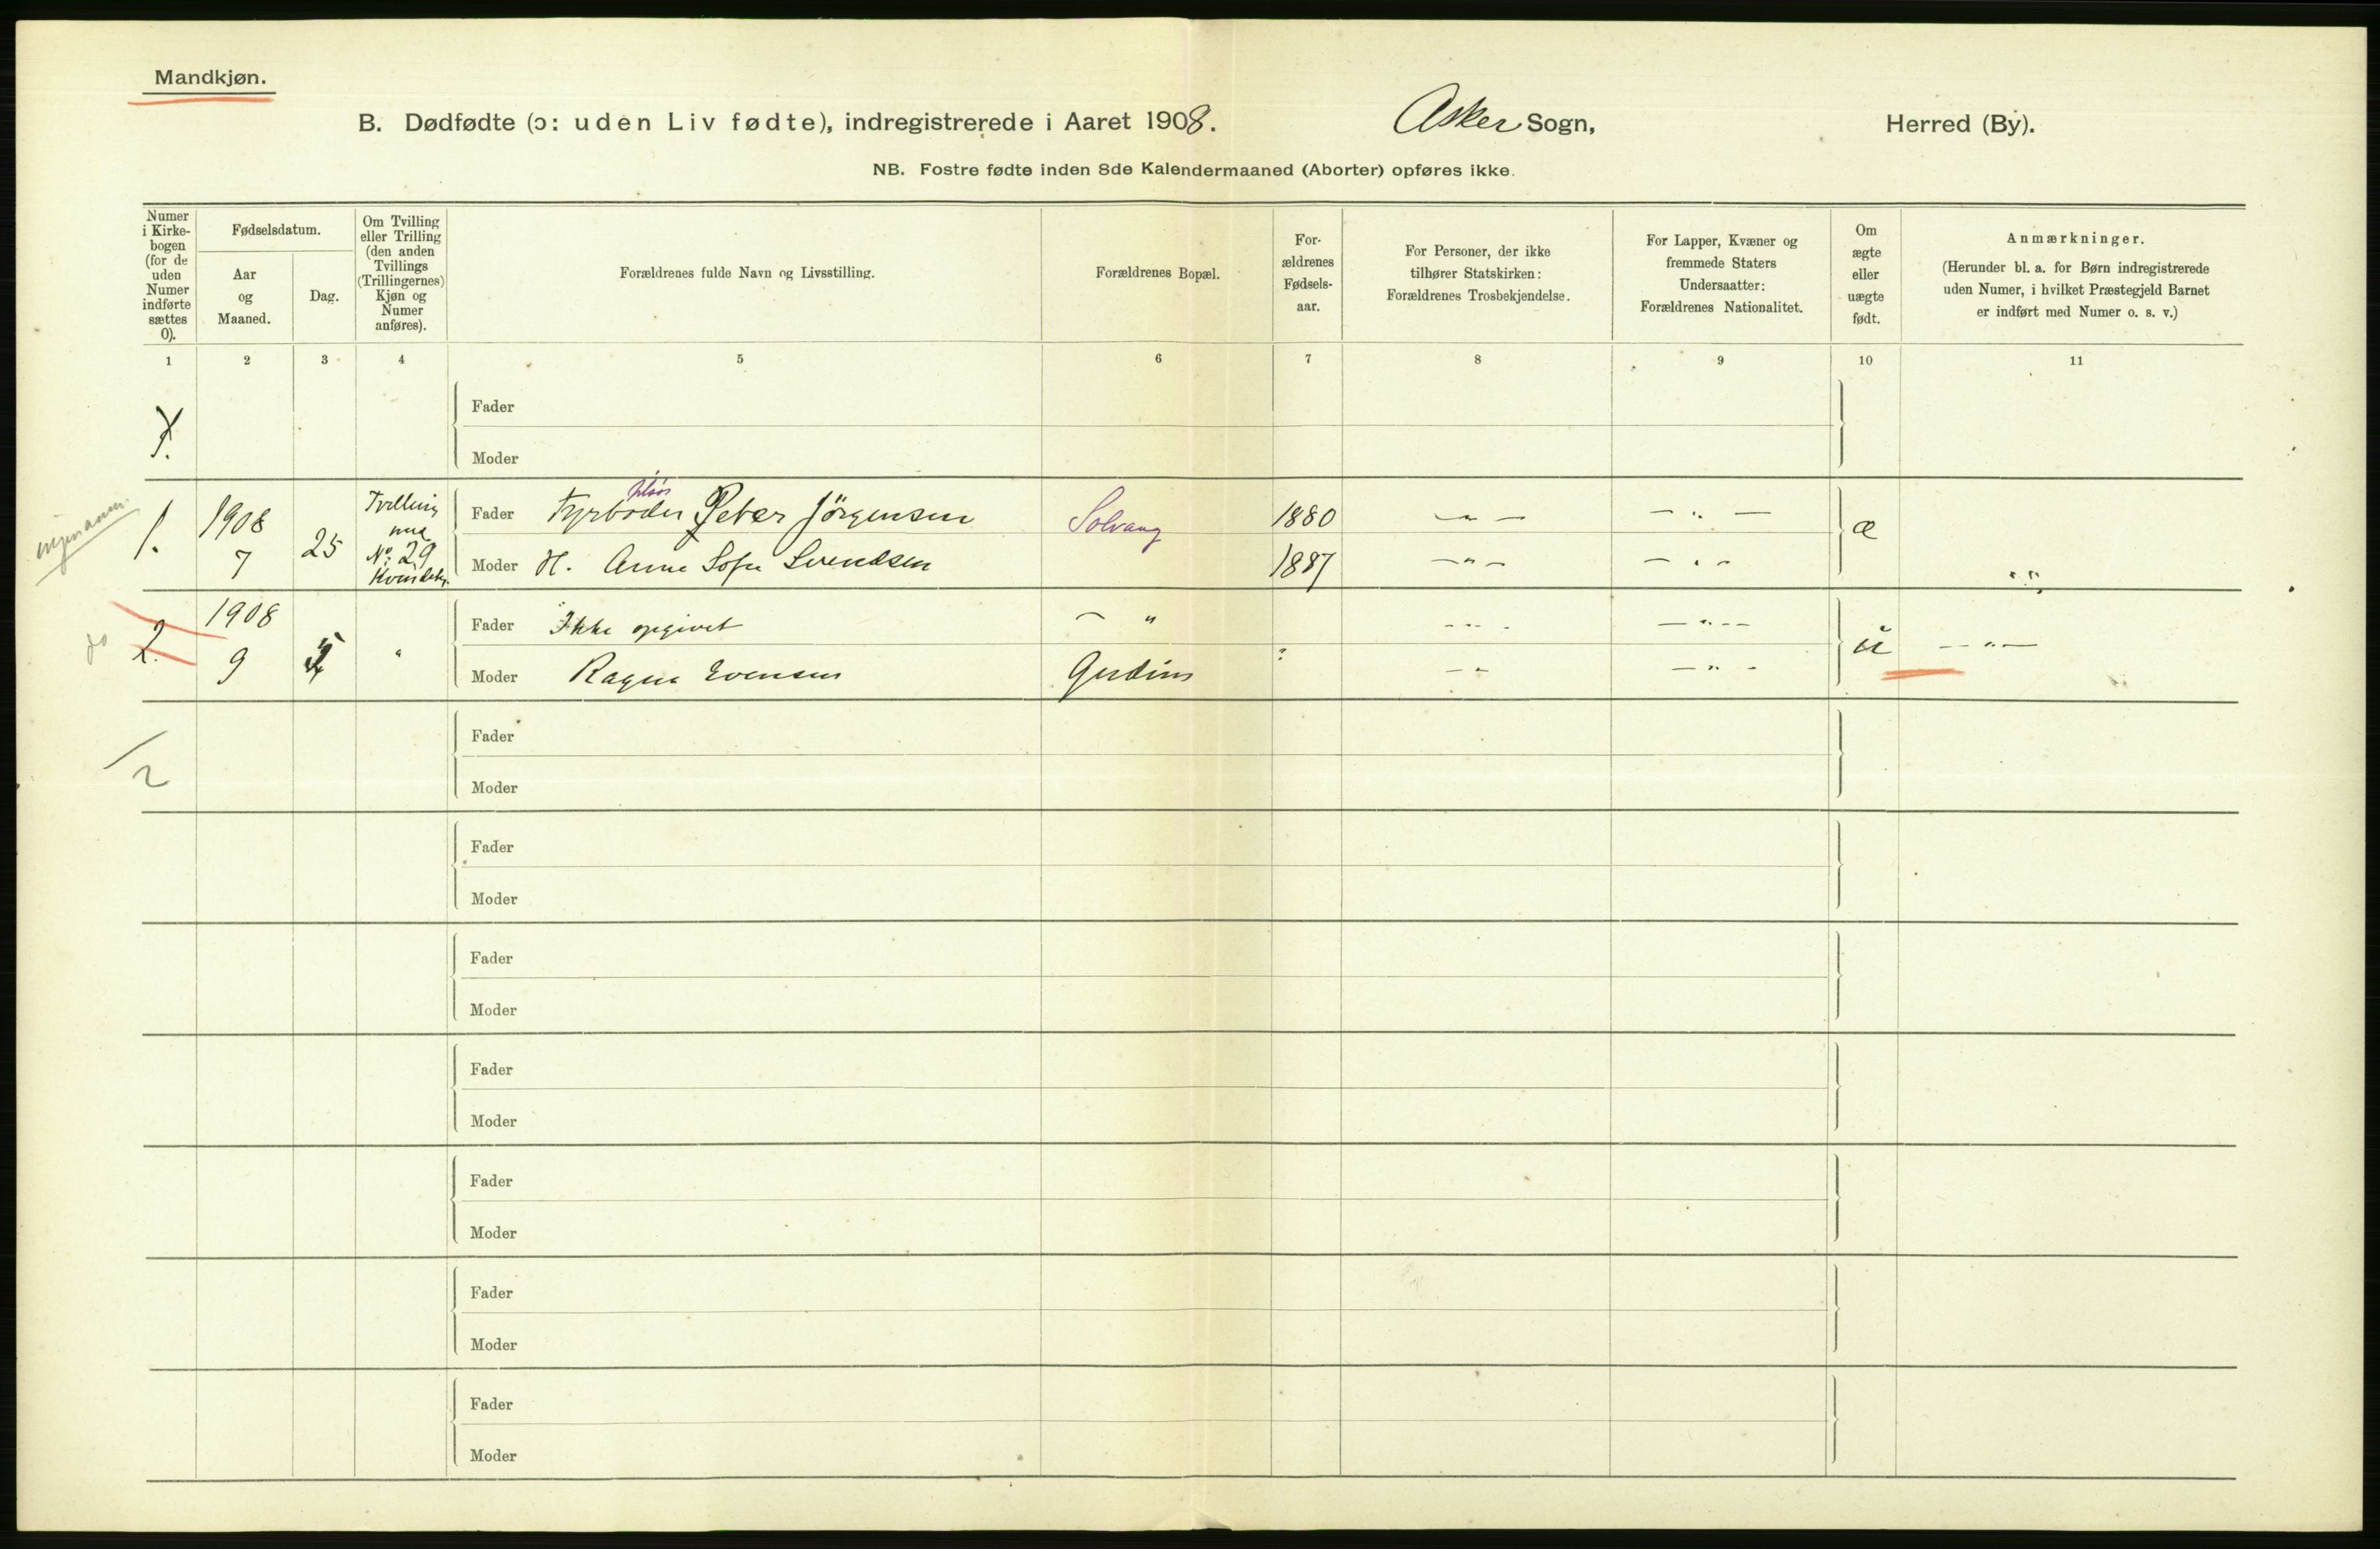 Mandkjøn.
B. Dødfødte (ɔ: uden Liv fødte), indregistrerede i Aaret 1908. Asker Sogn, Herred (By).
NB. Fostre fødte inden 8de Kalendermaaned (Aborter) opføres ikke.
Numer
i Kirke-
bogen
(for de
uden
Numer
indførte
sættes
0).
Fødselsdatum.
Aar
og
Maaned.
Dag.
Om Tvilling
eller Trilling
(den anden
Tvillings
(Trillingernes)
Kjøn og
Numer
anføres).
Forældrenes fulde Navn og Livsstilling.
Forældrenes Bopæl.
For-
ældrenes
Fødsels-
aar.
For Personer, der ikke
tilhører Statskirken:
Forældrenes Trosbekjendelse.
For Lapper, Kvæner og
fremmede Staters
Undersaatter:
Forældrenes Nationalitet.
Om
ægte
eller
uægte
født.
Anmærkninger.
(Herunder bl. a. for Børn indregistrerede
uden Numer, i hvilket Præstegjeld Barnet
er indført med Numer o. s. v.)
1 2 3 4 5 6 7 8 9 10 11
Fader
Moder
1. 1908
7
25
Tvilling
No. 29
Fader Fyrbøder Peter Jörgensen Solvang 1880 — " — — " — æ
Moder H. Anne Sofie Svendsen 1887 — " — — " —
2. 1908
9
"
Fader Ikke opgivet — " — " — — " — u — " —
Moder Ragna Evensen — " — " —
Fader
Moder
2
Fader
Moder
Fader
Moder
Fader
Moder
Fader
Moder
Fader
Moder
Fader
Moder